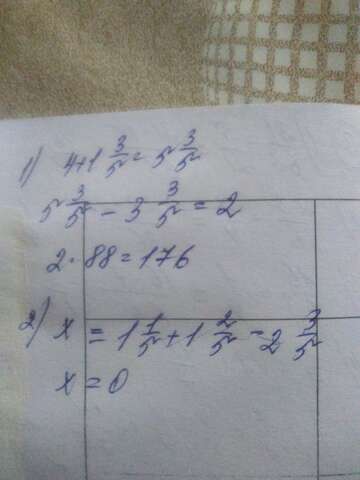 1) 4+1 3/5 = 5 3/5
5 3/5 - 3 3/5 = 2
2 · 88 = 176
2) x = 1 1/5 + 1 2/5 - 2 3/5
x = 0